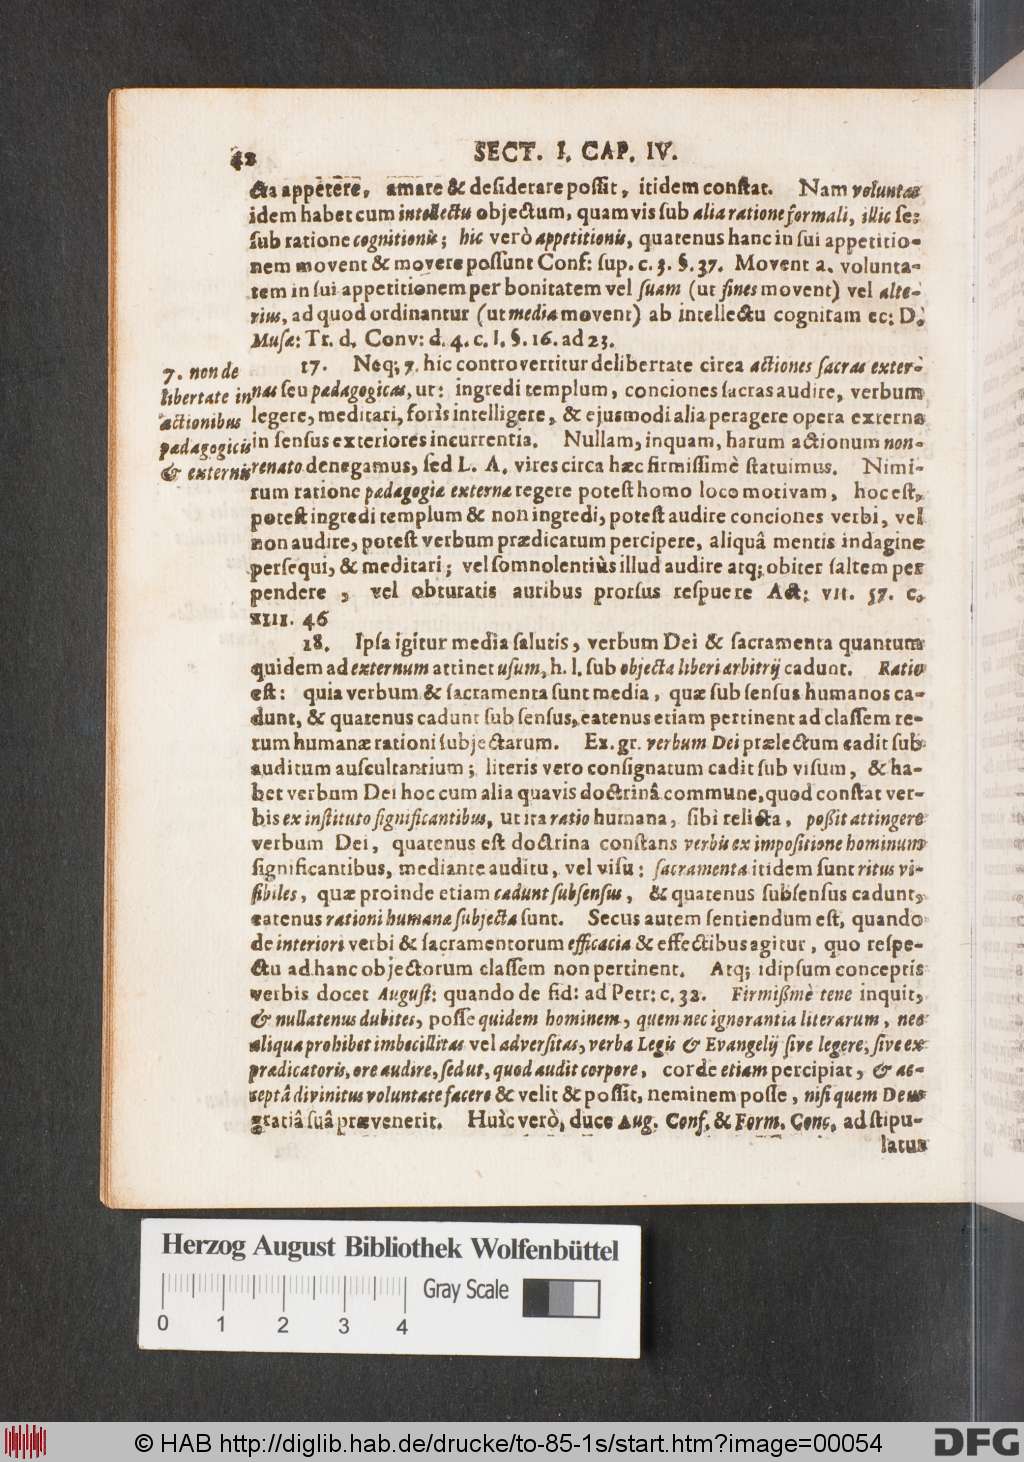 42
SECT. I. CAP. IV.
cta appetere, amare & desiderare possit, itidem constat. Nam voluntas
idem habet cum intellectu objectum, quamvis sub alia ratione formali, illic sc:
sub ratione cognitionis; hic verò appetitionis, quatenus hanc in sui appetitio-
nem movent & movere possunt Conf: sup. c. 3. §. 37. Movent a. volunta-
tem in sui appetitionem per bonitatem vel suam (ut fines movent) vel alte-
rius, ad quod ordinantur (ut media movent) ab intellectu cognitam ec: D.
Musæ: Tr. d. Conv: d. 4. c. 1. §. 16. ad 23.
7. non de
libertate in
actionibus
pædagogicis
& externis
17. Neq; 7. hic controvertitur de libertate circa actiones sacras exter-
nas seu pædagogicas, ut: ingredi templum, conciones sacras audire, verbum
legere, meditari, foris intelligere, & ejusmodi alia peragere opera externa
in sensus exteriores incurrentia. Nullam, inquam, harum actionum non-
renato denegamus, sed L. A. vires circa hæc firmissimè statuimus. Nimi-
rum ratione pædagogiæ externæ regere potest homo loco motivam, hoc est,
potest ingredi templum & non ingredi, potest audire conciones verbi, vel
non audire, potest verbum prædicatum percipere, aliquâ mentis indagine
persequi, & meditari; vel somnolentiùs illud audire atq; obiter saltem per
pendere, vel obturatis auribus prorsus respuere Act: VII. 57. c.
XIII. 46
18. Ipsa igitur media salutis, verbum Dei & sacramenta quantum
quidem ad externum attinet usum, h. l. sub objecta liberi arbitrij cadunt. Ratio
est: quia verbum & sacramenta sunt media, quæ sub sensus humanos ca-
dunt, & quatenus cadunt sub sensus, eatenus etiam pertinent ad classem re-
rum humanæ rationi subjectarum. Ex. gr. verbum Dei prælectum cadit sub
auditum auscultantium; literis vero consignatum cadit sub visum, & ha-
bet verbum Dei hoc cum alia quavis doctrinâ commune, quod constat ver-
bis ex instituto significantibus, ut ita ratio humana, sibi relicta, poßit attingere
verbum Dei, quatenus est doctrina constans verbis ex impositione hominum
significantibus, mediante auditu, vel visu: sacramenta itidem sunt ritus vi-
sibiles, quæ proinde etiam cadunt sub sensus, & quatenus sub sensus cadunt,
eatenus rationi humanæ subjecta sunt. Secus autem sentiendum est, quando
de interiori verbi & sacramentorum efficacia & effectibus agitur, quo respe-
ctu ad hanc objectorum classem non pertinent. Atq; idipsum conceptis
verbis docet August: quando de fid: ad Petr: c. 32. Firmißmè tene inquit,
& nullatenus dubites, posse quidem hominem, quem nec ignorantia literarum, nec
aliqua prohibet imbecillitas vel adversitas, verba Legis & Evangelij sive legere, sive ex
prædicatoris, ore audire, sed ut, quod audit corpore, corde etiam percipiat, & ac-
ceptâ divinitus voluntate facere & velit & possit, neminem posse, nisi quem Deus
gratiâ suâ prævenerit. Huic verò, duce Aug. Conf. & Form. Conc. ad stipu-
latus
Herzog August Bibliothek Wolfenbüttel
Gray Scale
0 1 2 3 4
© HAB http://diglib.hab.de/drucke/to-85-1s/start.htm?image=00054
DFG